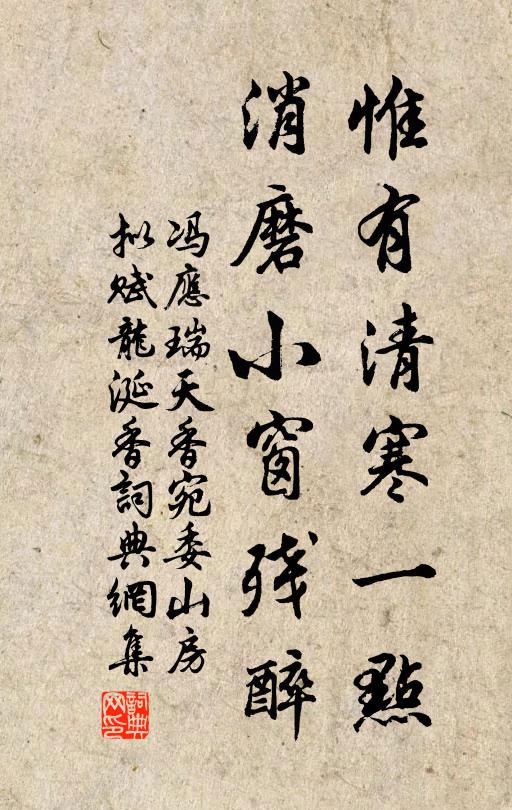 惟有清寒一點
消磨小窗残醉
冯應瑞天香宛委山房
拟赋龍涎香詞典網集
詞典
网印